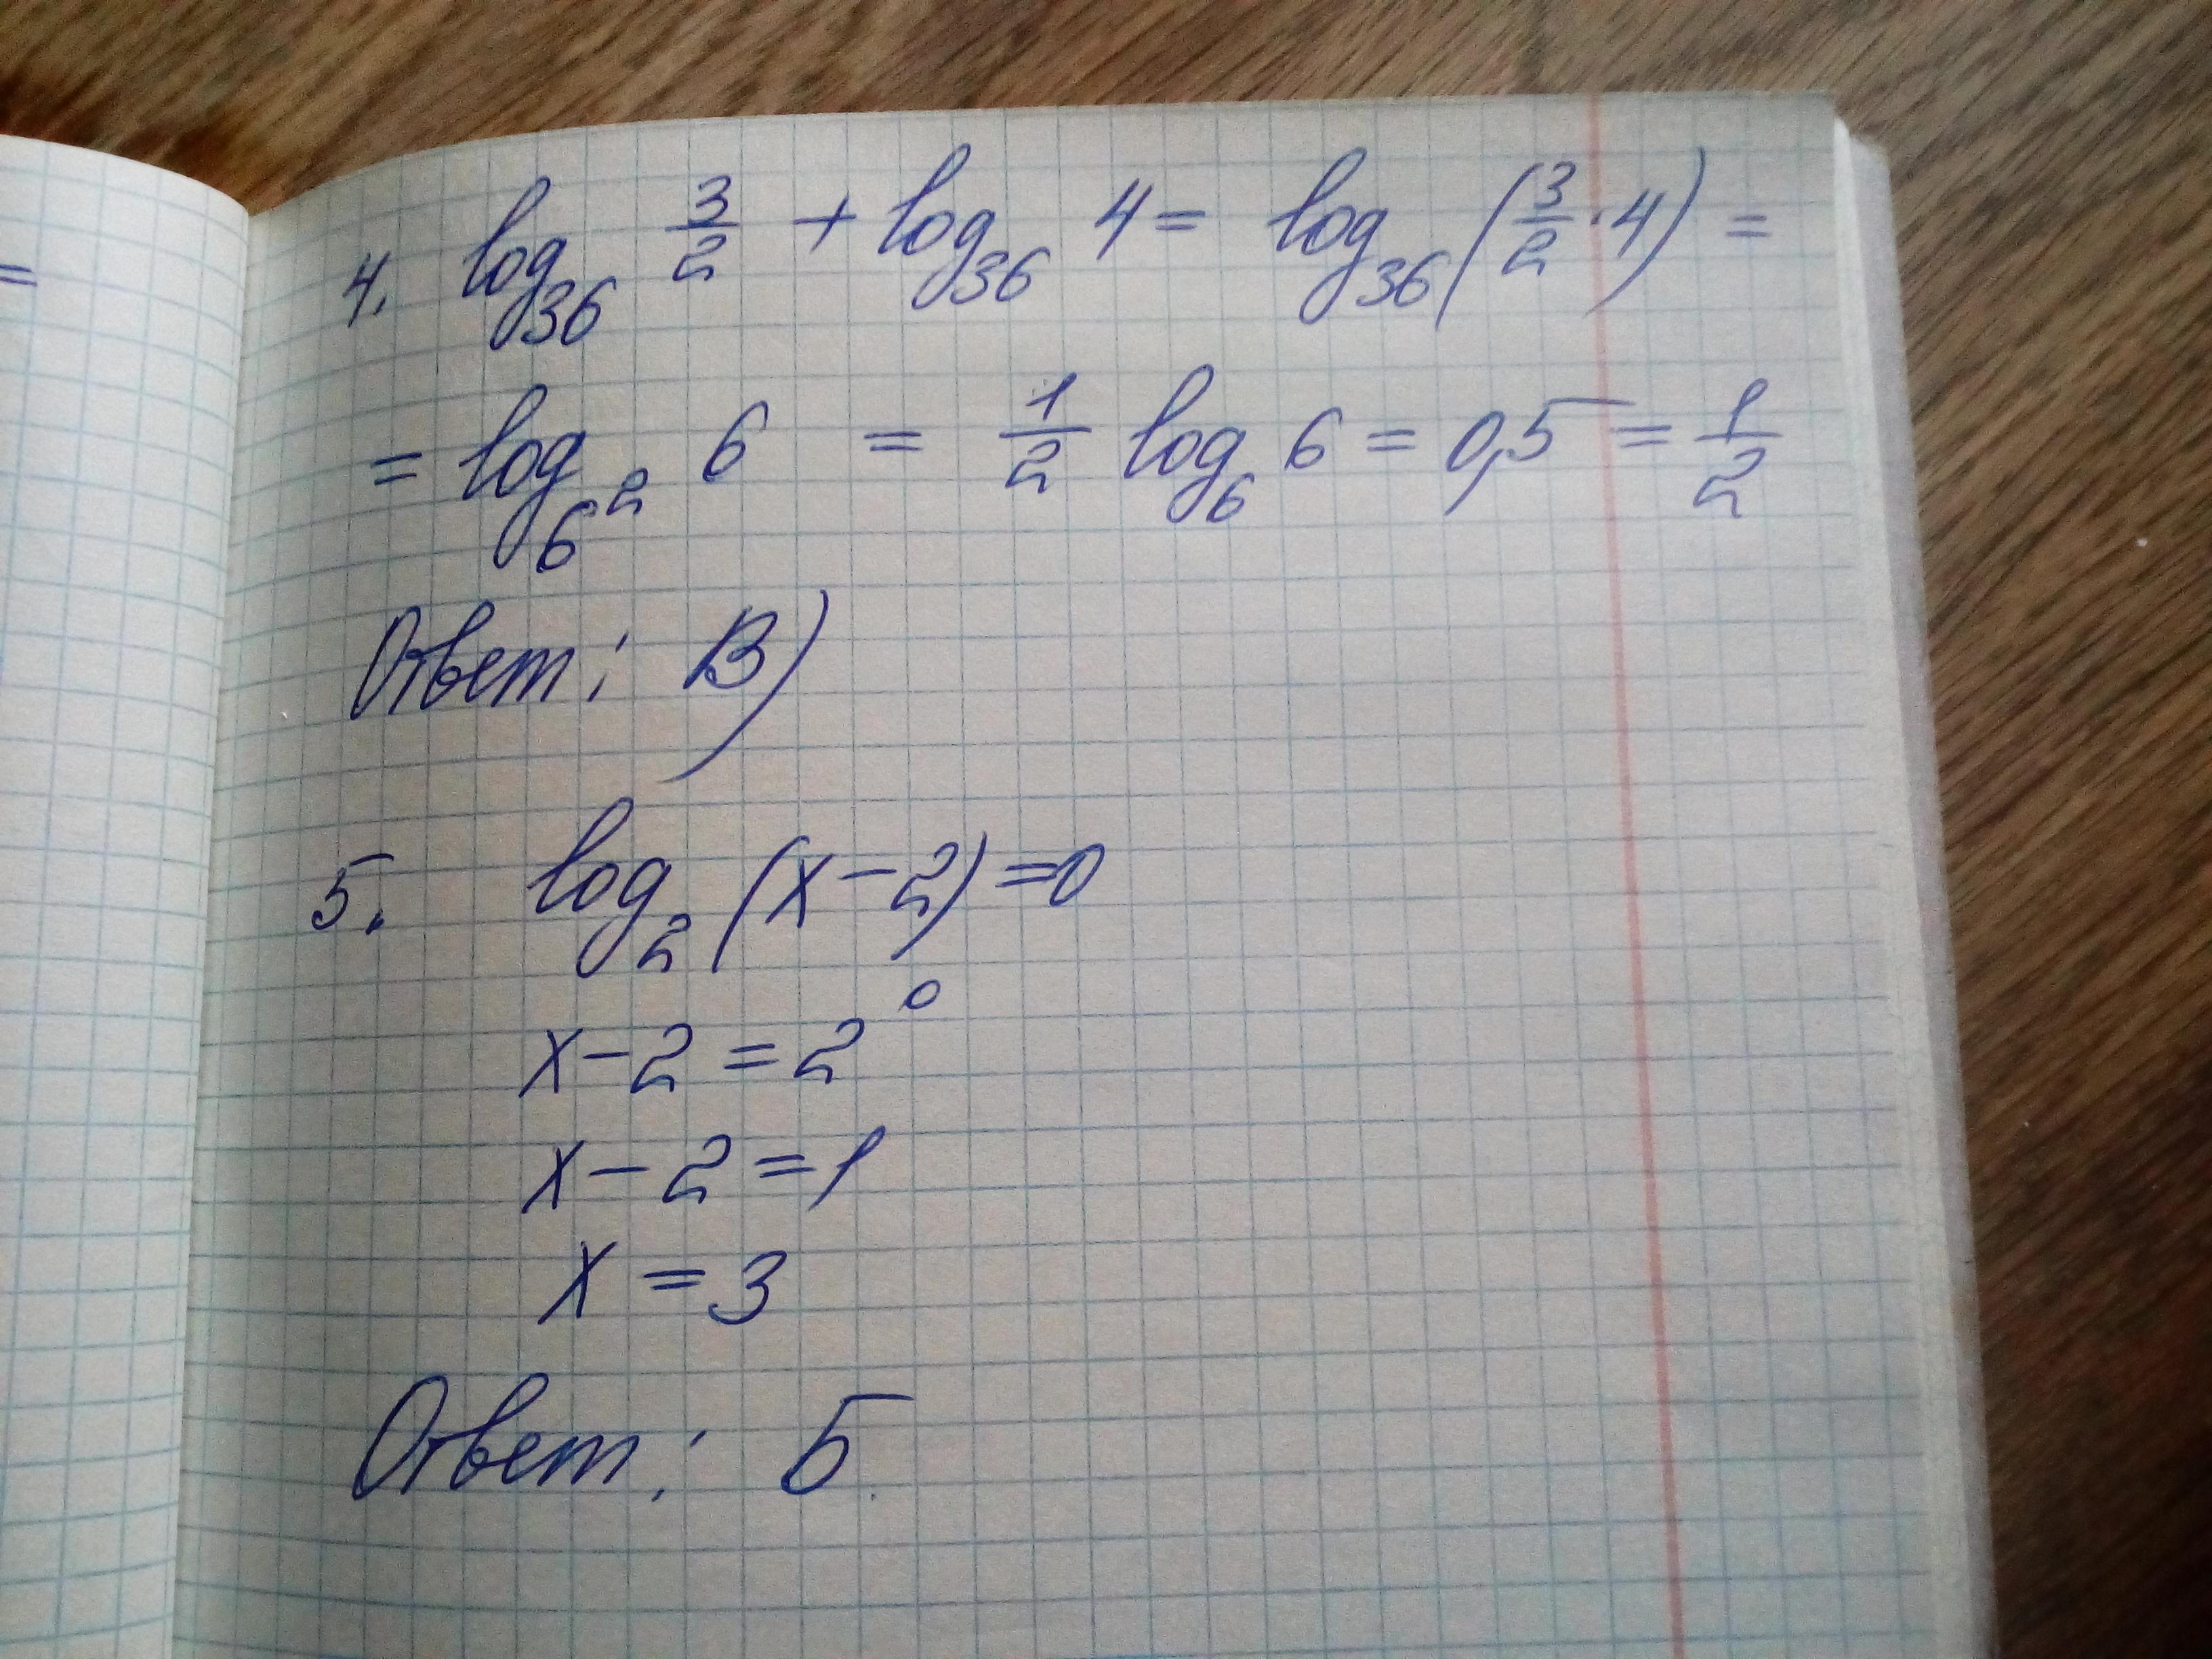 =
4. log₃₆ 3/2 + log₃₆ 4 = log₃₆ (3/2 · 4) =
= log₆² 6 = 1/2 log₆ 6 = 0,5 = 1/2
Ответ: В)
5. log₂ (x − 2) = 0
x − 2 = 2⁰
x − 2 = 1
x = 3
Ответ: Б